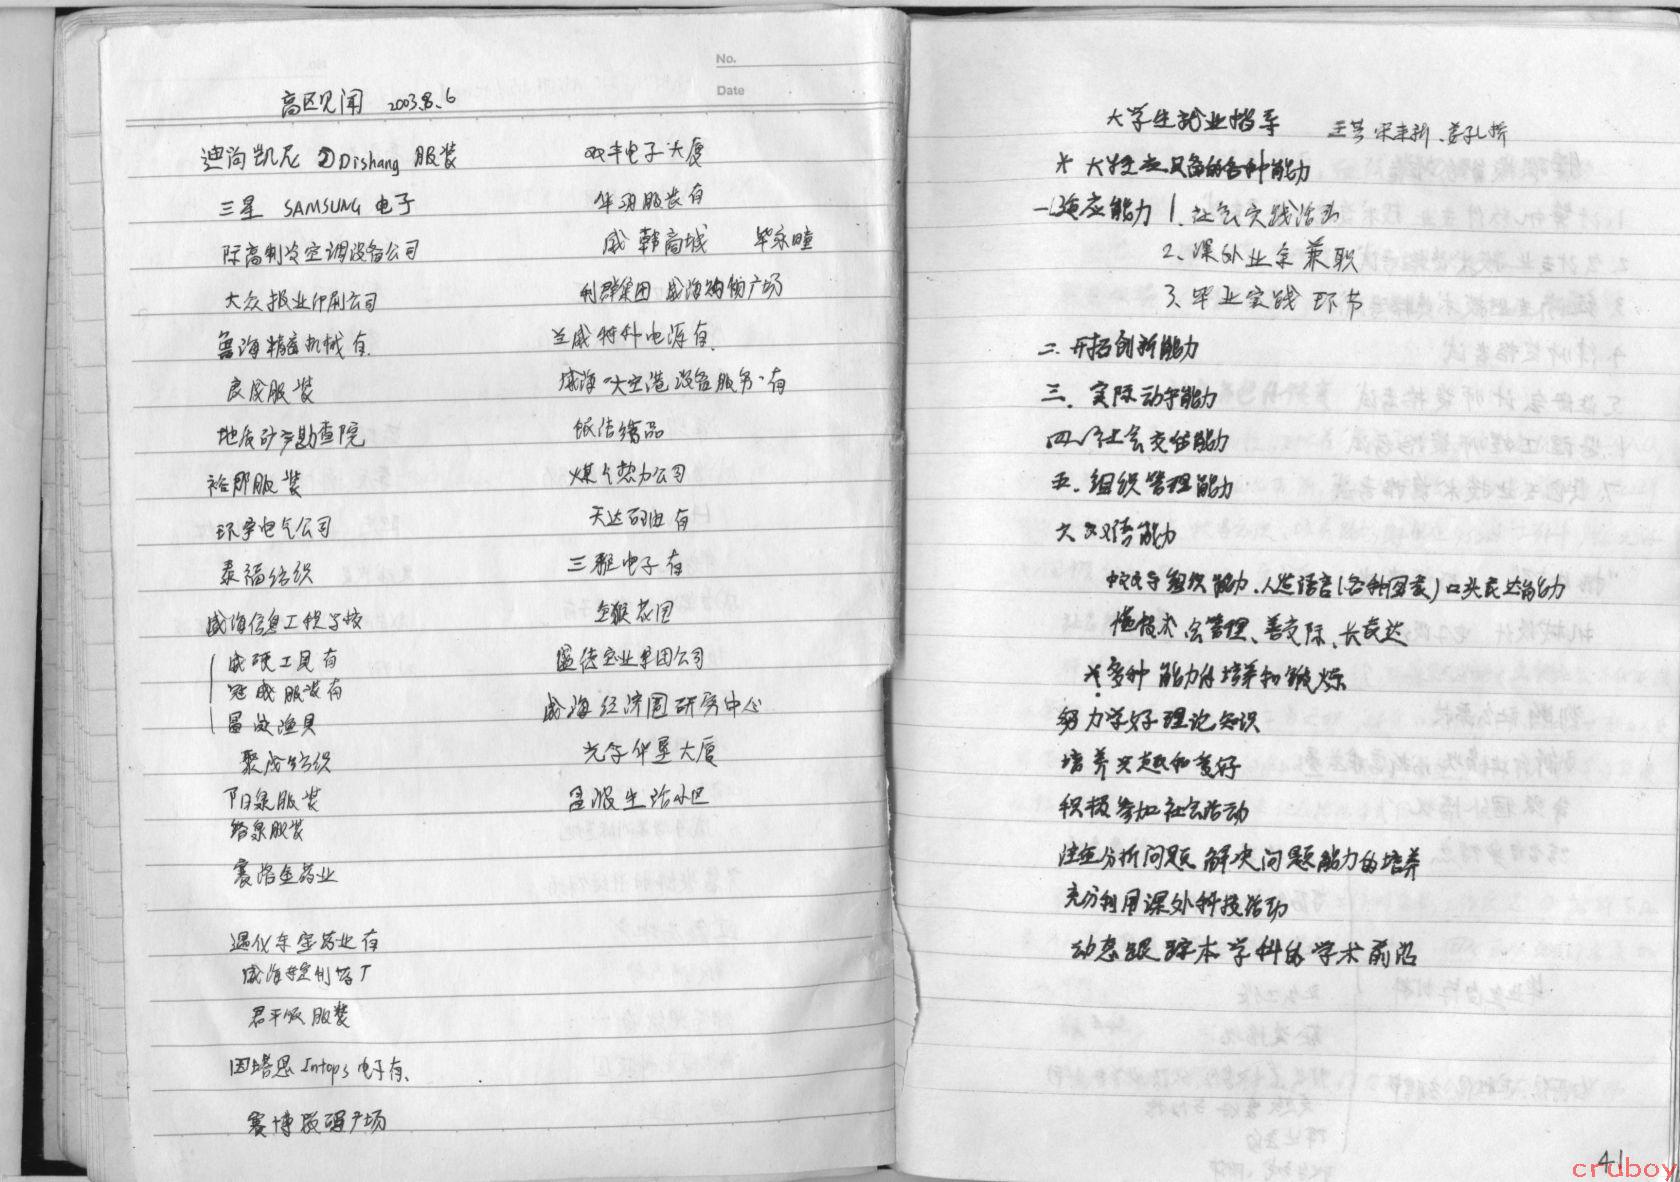 No.
Date
高区见闻 2003.8.6
迪尚凯尼 Dishang 服装
三星 SAMSUNG 电子
际高制冷空调设备公司
大众报业印刷公司
鲁海精密机械有
良成服装
地质矿产勘查院
裕那服装
环宇电气公司
泰福纺织
威海信息工程学校
威硬工具有
冠威服装有
渔具
聚成纺织
阳泉服装
服装
赛洛金药业
药业有
威海
服装
因塔思 Intops 电子有.
赛博数码广场
双丰电子大厦
华羽服装有
威韩商城
利群集团 威海购物广场
兰威特种电源有.
威海 设备服务有
银洁绣品
煤气热力公司
天达石油有
三雅电子有
金猴花园
盛德宝业集团公司
威海经济圈研究中心
光华星大厦
生活小区
大学生就业指导 王芸 宋来新、姜孔桥
* 大学生应具备的各种能力
一、适应能力 1. 社会实践活动
2、课外业余兼职
3、毕业实践环节
二. 开拓创新能力
三、实际动手能力
四、社会交往能力
五. 组织管理能力
六 双语能力
中文文字组织能力、人造语言(各种图表)口头表达能力
懂技术 会管理、善交际、长表达
* 多种能力的培养和锻炼
努力学好理论知识
培养兴趣和爱好
积极参加社会活动
注重分析问题 解决问题能力的培养
充分利用课外科技活动
动态跟踪本学科的学术前沿
41
cruboy